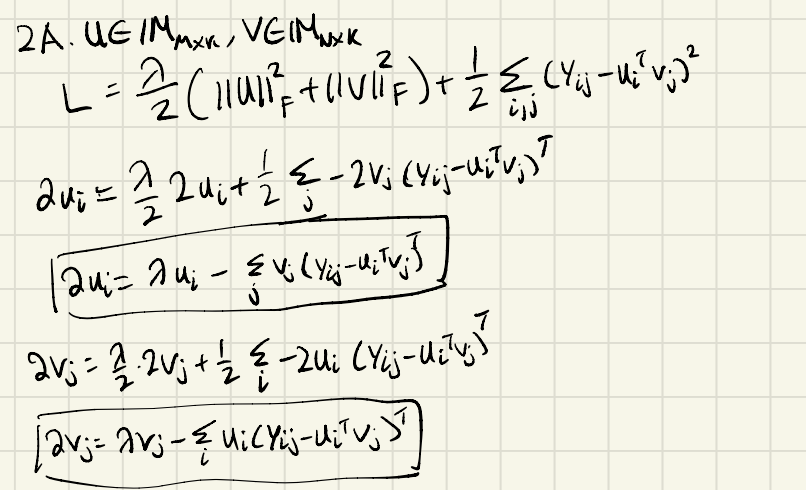 2A. U∈ℝM_{M×K}, V∈ℝM_{N×K}
L = λ/2 (||U||²_F + ||V||²_F) + 1/2 Σ_{i,j} (Y_{ij} - u_i^T v_j)²
∂u_i = λ/2 2u_i + 1/2 Σ_j -2v_j (y_{ij} - u_i^T v_j)^T
∂u_i = λu_i - Σ_j v_j (y_{ij} - u_i^T v_j)^T
∂v_j = λ/2 · 2v_j + 1/2 Σ_i -2u_i (Y_{ij} - u_i^T v_j)^T
∂v_j = λv_j - Σ_i u_i (Y_{ij} - u_i^T v_j)^T